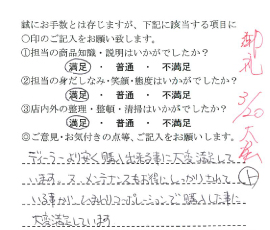 誠にお手数とは存じますが、下記に該当する項目に
○印のご記入をお願い致します。
①担当の商品知識・説明はいかがでしたか？
満足 ・ 普通 ・ 不満足
②担当の身だしなみ・笑顔・態度はいかがでしたか？
満足 ・ 普通 ・ 不満足
③店内外の整理・整頓・清掃はいかがでしたか？
満足 ・ 普通 ・ 不満足
◎ご意見・お気付きの点等、ご記入をお願いします。
ディーラーより安く購入出来る事に大変満足して
います。又、メンテナンスもお得にしっかりされて
いる事から、コーポレーションで購入した事に
大変満足しています
御礼
3/20